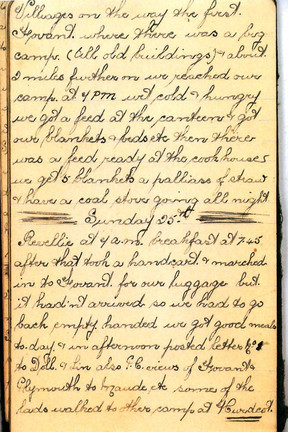 Villages on the way the first.
Fovant. where there was a big
camp. (All old buildings) & about
2 miles further on we reached our
camp. at 4 PM wet cold & hungry
we got a feed at the canteen & got
our blankets & beds etc then there
was a feed ready at the cookhouses
we get 5 blankets a palliass of straw
& have a coal stove going all night.
Sunday 25th
Revellie at 7 a.m. breakfast at 7.45
after that took a handcart. & marched
in to Fovant. for our luggage but.
it had'nt arrived so we had to go
back empty handed we got good meals
to. day & in afternoon posted letter
to Doll. & Lin also P.C. views of Fovant &
Plymouth to Maude, etc some of the
lads walked to other camp at Hurdcot.